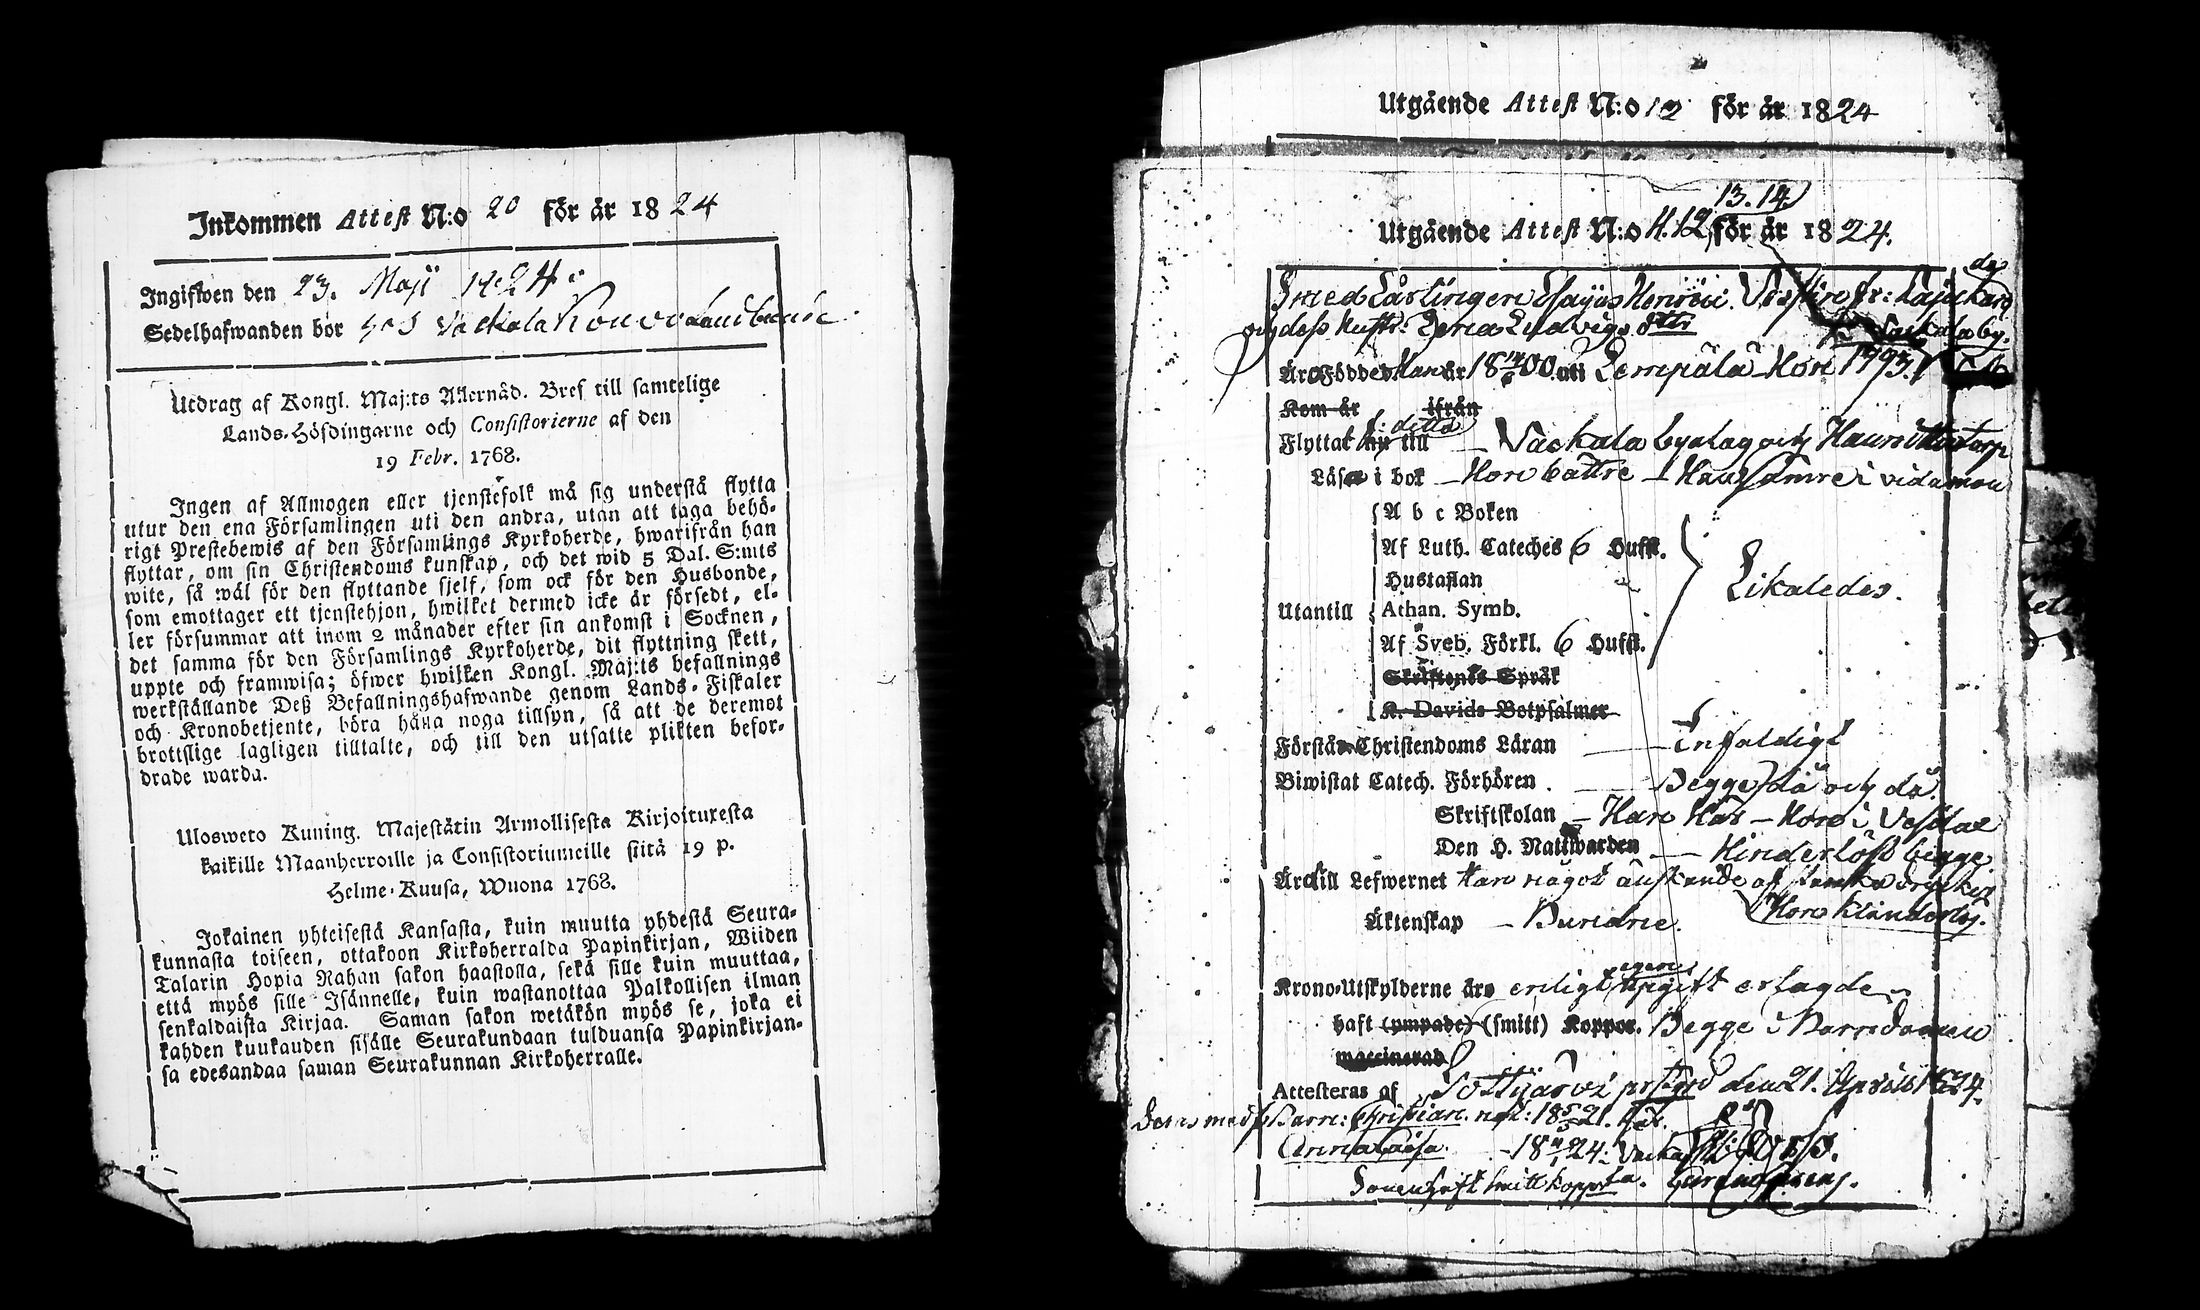 Inkommen Attest N:o 20 för år 1824
Ingifwen den 23. Maji 1824.
Sedelhafwanden bor hos Vackala
Utdrag af Kongl. Maj:ts Allernåd. Bref till samtelige
Lands-Höfdingarne och Consistorierne af den
19 Febr. 1768.
Ingen af Allmogen eller tjenstefolk må sig understå flytta
utur den ena Församlingen uti den andra, utan att taga behö-
rigt Prestebewis af den Församlings Kyrkoherde, hwarifrån han
flyttar, om sin Christendoms kunskap, och det wid 5 Dal. S:mts
wite, så wäl för den flyttande sjelf, som ock för den Husbonde,
som emottager ett tjenstehjon, hwilket dermed icke är försedt, el-
ler försummar att inom 2 månader efter sin ankomst i Socknen,
det samma för den Församlings Kyrkoherde, dit flyttning skett,
uppte och framwisa; öfwer hwilken Kongl. Maj:ts befallnings
werkställande Deß Befallningshafwande genom Lands-Fiskaler
och Kronobetjente, böra hålla noga tillsyn, så att de deremot
brottslige lagligen tilltalte, och till den utsatte plikten befor-
drade warda.
Ulosweto Kuning. Majestätin Armollisesta Kirjoituxesta
kaikille Maanherroille ja Consistoriumeille siitä 19 p.
Helme-Kuusa, Wuona 1768.
Jokainen yhteisestä Kansasta, kuin muutta yhdestä Seura-
kunnasta toiseen, ottakoon Kirkoherralda Papinkirjan, Wiiden
Talarin Hopia Rahan sakon haastolla, sekä sille kuin muuttaa,
että myös sille Isännelle, kuin wastanottaa Palkollisen ilman
senkaldaista Kirjaa. Saman sakon wetäkön myös se, joka ei
kahden kuukauden sisälle Seurakundaan tulduansa Papinkirjan-
sa edesandaa saman Seurakunnan Kirkoherralle.
Utgående Attest N:o 12 för år 1824
13. 14
Utgående Attest N:o 11. 12 för år 1824.
Smed Lärlingen Esayas Henrici
och dess hustr: Lena Ludvigs dttr
Äro Födde Han år 1800 uti Lempälä Hon 1793.
Kom år ifrån
f: detta
Flyttat till Vackala byalag och
Läsa i bok Hon bättre Han sämre
A b c Boken
Af Luth. Cateches 6 Hufst.
Hustaflan
Likaledes.
Utantill Athan. Symb.
Af Sveb. Förkl. 6 Hufst.
Skriftenes Språk
K. Davids Botpsalmer
Förstå Christendoms Läran Enfaldigt
Biwistat Catech. Förhören Begge då och då.
Skriftskolan Han Hon
Den H. Nattwarden Hinderlöß begge
Äro till Lefwernet Han något af starka drycker
Hon klanderlös.
Äktenskap Bundne.
egen
Krono-Utskylderne äro enligt uppgift erlagde
haft (ympade) (smitt) Koppor. Begge i Barndomen
waccinerad
Attesteras af Tottijärvi den 21. April 1824.
Barn: Christian
Anna Caisa
haft smittkoppor